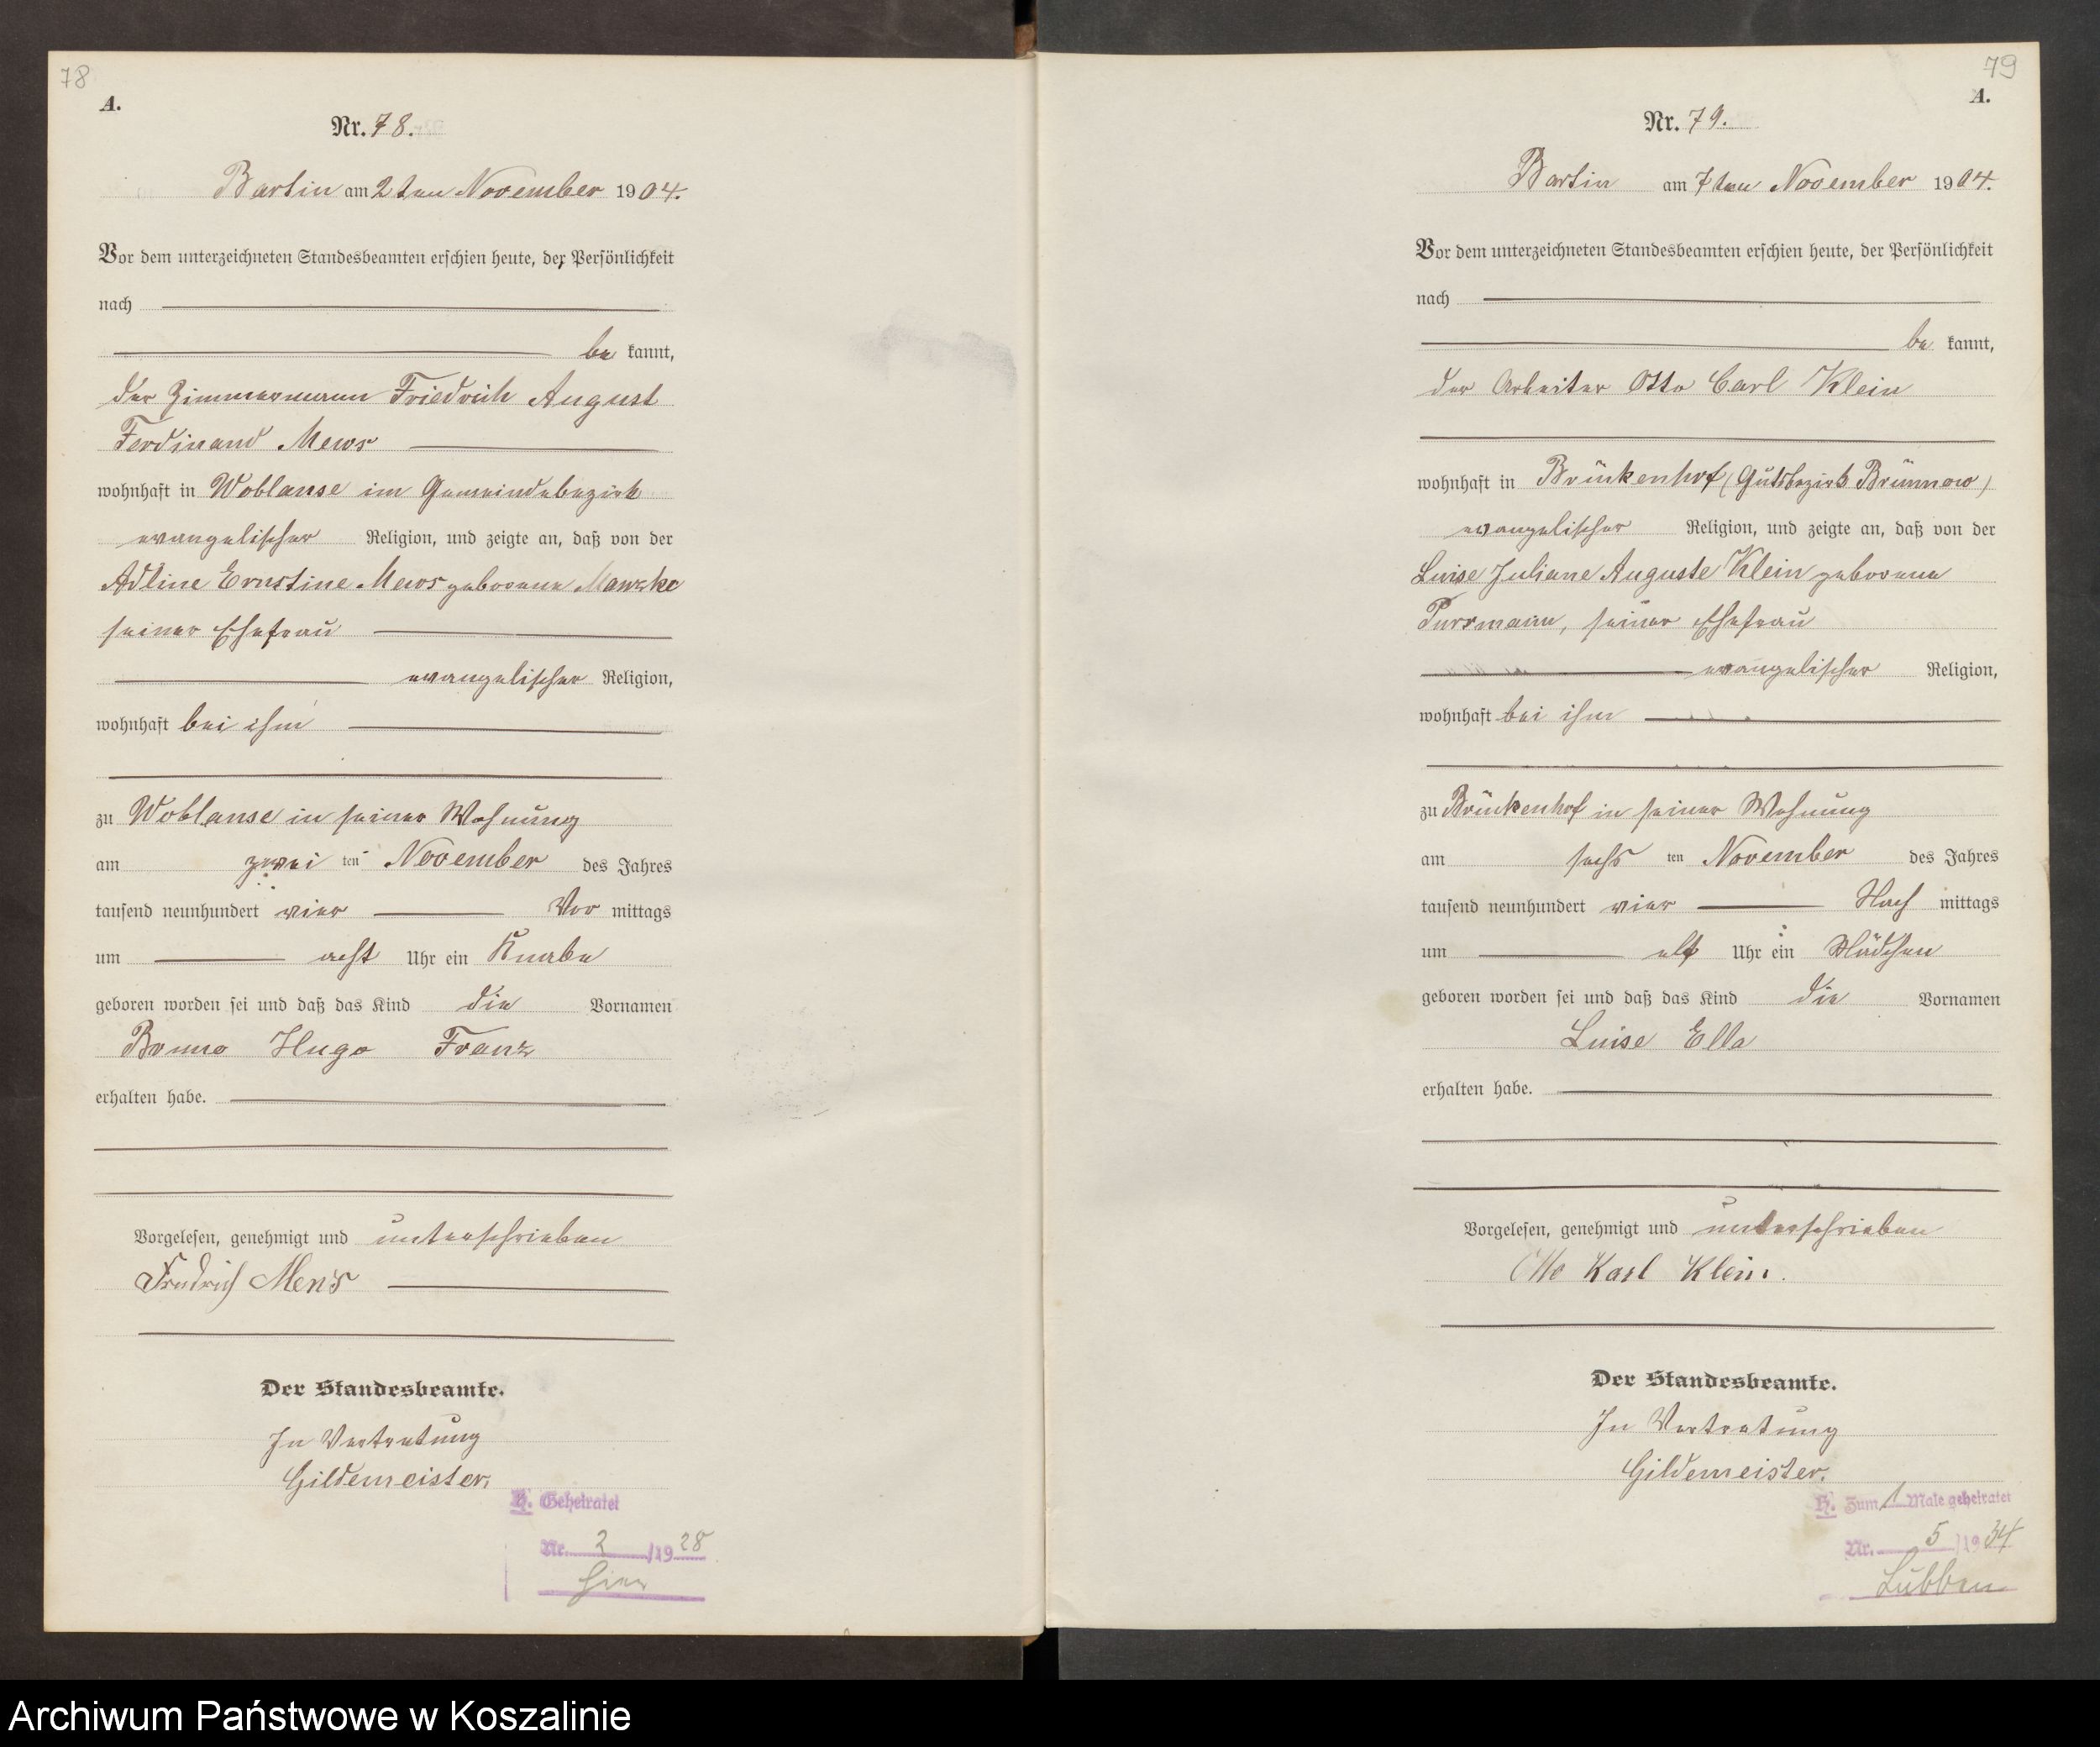 78
A.
Nr. 78.
Bartin am 2ten November 1904.
Vor dem unterzeichneten Standesbeamten erschien heute, der Persönlichkeit
nach
be kannt,
der Zimmermann Friedrich August
Ferdinand Mews
wohnhaft in Woblanse im Gemeindebezirk
evangelischer Religion, und zeigte an, daß von der
Adline Ernstine Mews geborene Manzke
seiner Ehefrau
evangelischer Religion,
wohnhaft bei ihm
zu Woblanse in seiner Wohnung
am zwei ten November des Jahres
tausend neunhundert vier Vor mittags
um acht Uhr ein Knabe
geboren worden sei und daß das Kind die Vornamen
Bruno Hugo Franz
erhalten habe.
Vorgelesen, genehmigt und unterschrieben
Friedrich Mews
Der Standesbeamte.
In Vertretung
Gildemeister.
H. Geheiratet
Nr. 2 /1928
hier
79
A.
Nr. 79.
Bartin am 7ten November 1904.
Vor dem unterzeichneten Standesbeamten erschien heute, der Persönlichkeit
nach
be kannt,
der Arbeiter Otto Carl Klein
wohnhaft in Brückenhof (Gutsbezirk Brünnow)
evangelischer Religion, und zeigte an, daß von der
Luise Juliane Auguste Klein geborene
Purrmann, seiner Ehefrau
evangelischer Religion,
wohnhaft bei ihm
zu Brückenhof in seiner Wohnung
am sechs ten November des Jahres
tausend neunhundert vier Nach mittags
um elf Uhr ein Mädchen
geboren worden sei und daß das Kind die Vornamen
Luise Ella
erhalten habe.
Vorgelesen, genehmigt und unterschrieben
Otto Karl Klein.
Der Standesbeamte.
In Vertretung
Gildemeister.
H. Zum 1 Male geheiratet
Nr. 5 /1934
Lübben
Archiwum Państwowe w Koszalinie